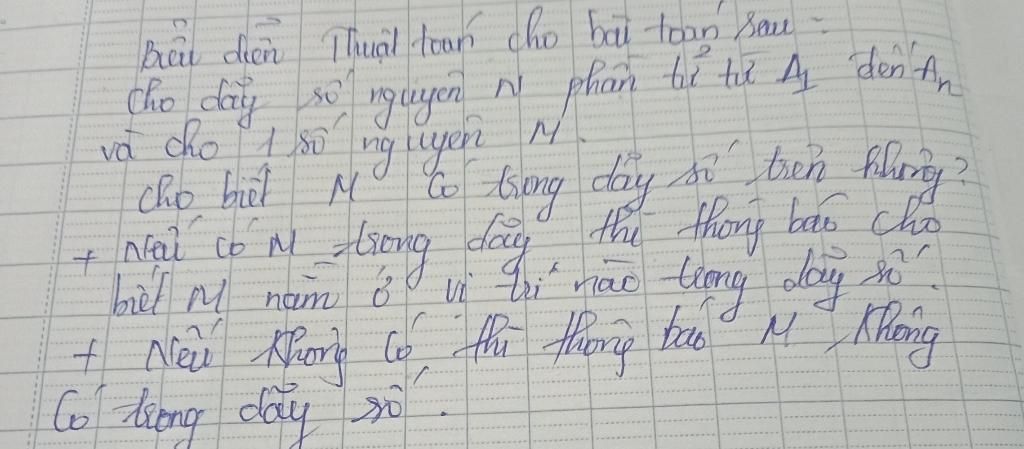 Biểu diễn Thuật toán cho bài toán sau:
Cho dãy số nguyên N phần tử từ A1 đến An
và cho 1 số nguyên M.
Cho biết M có trong dãy số trên không?
+ Nếu có M trong dãy thì thông báo cho
biết M nằm ở vị trí nào trong dãy số.
+ Nếu không có thì thông báo M không
Có trong dãy số.